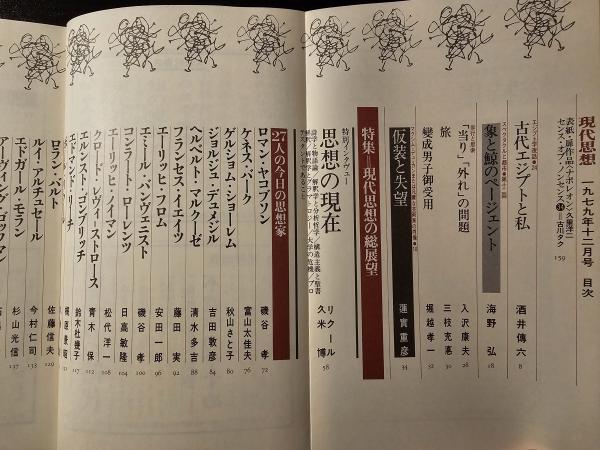 現代思想 一九七九年十二月号 目次
表紙・扉作品〈ナポレオン〉久里洋二
センス・オブ・ノンセンス31 古川タク 159
エジプト学夜話●24
古代エジプトと私 酒井傳六 8
象と鯨のページェント 海野 弘 18
「当り」「外れ」の問題 入沢康夫 28
旅 三枝充悳 30
變成男子御受用 堀越孝一 32
仮装と失望 蓮實重彦 34
特集＝現代思想の総展望
特別インタヴュー
思想の現在 リクール 久米 博 58
27人の今日の思想家
ロマン・ヤコブソン 磯谷 孝 72
ケネス・バーク 富山太佳夫 76
ゲルショム・ショーレム 秋山さと子 80
ジョルジュ・デュメジル 吉田敦彦 84
ヘルベルト・マルクーゼ 清水多吉 88
フランセス・イエイツ 藤田 実 92
エーリッヒ・フロム 安田一郎 96
エミール・バンヴェニスト 磯谷 孝 100
コンラート・ローレンツ 日高敏隆 104
エーリッヒ・ノイマン 松代洋一 108
クロード・レヴィ＝ストロース 青木 保 112
エルンスト・ゴンブリッチ 鈴木杜幾子 117
エドマンド・リーチ
ロラン・バルト 佐藤信夫 129
ルイ・アルチュセール 今村仁司 133
エドガール・モラン 杉山光信 137
アーヴィング・ゴッフマン